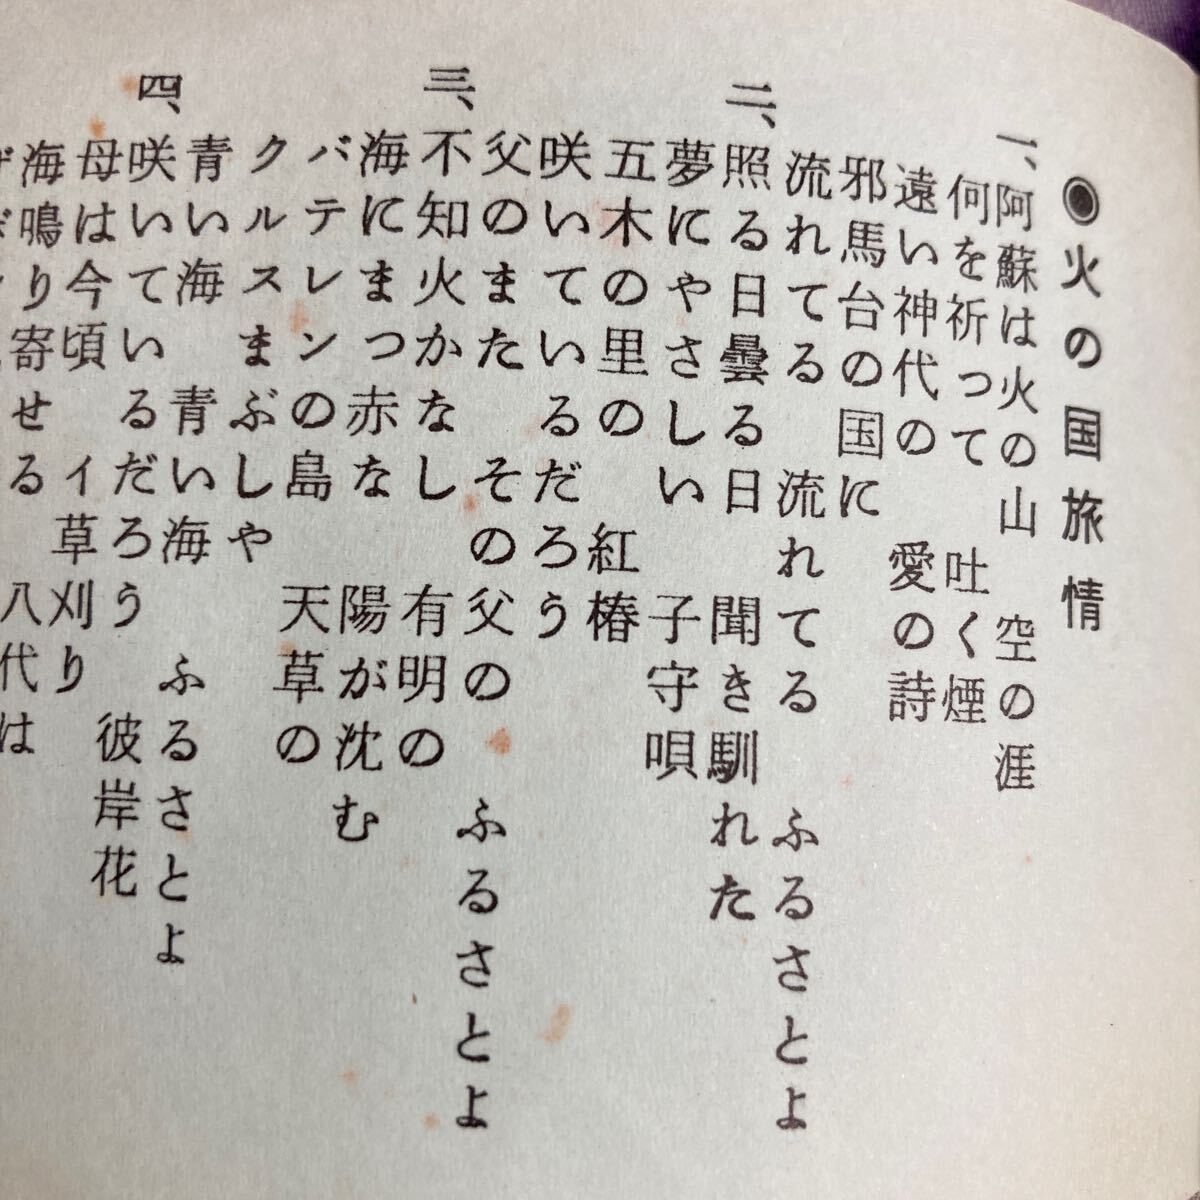 ◉火の国旅情
一、阿蘇は火の山　空の涯
何を祈って　吐く煙
遠い神代の　愛の詩
邪馬台の国に
流れてる　流れてる　ふるさとよ
二、照る日曇る日　聞き馴れた
夢にやさしい　子守唄
五木の里の　紅椿
咲いているだろう
父のまた　その父の　ふるさとよ
三、不知火かなし　有明の
海にまつ赤な　陽が沈む
バテレンの島　天草の
クルスまぶしや
青い海　青い海　ふるさとよ
四、咲いているだろう　彼岸花
母は今頃　イ草刈り
海鳴り寄せる　八代は